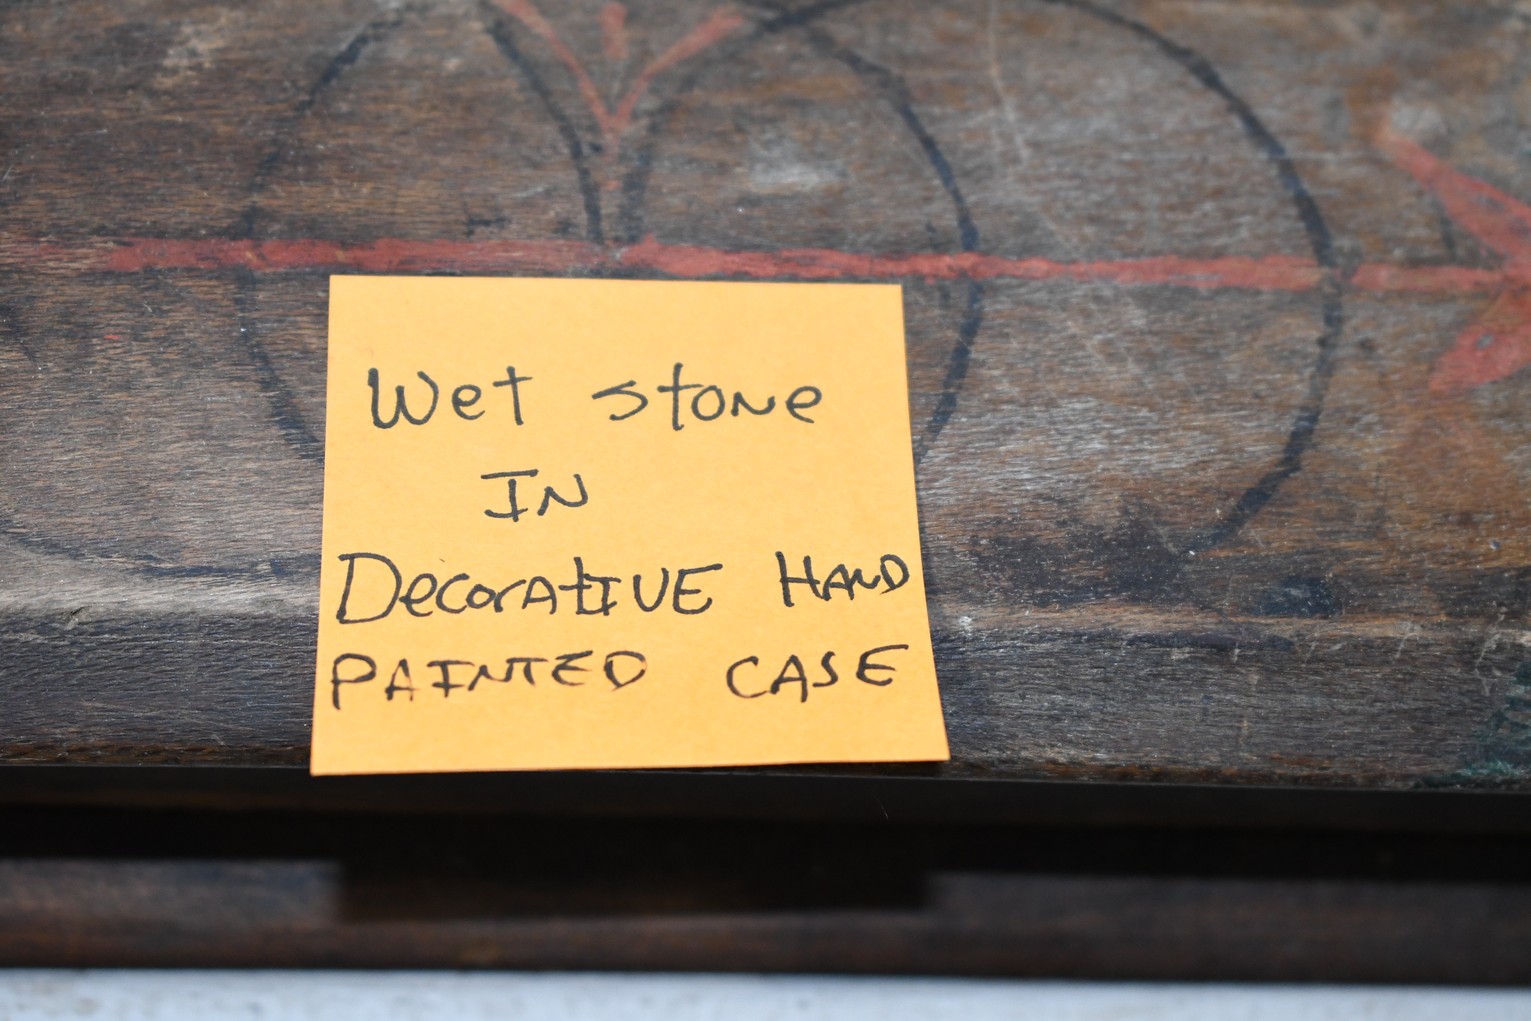 Wet stone
IN
DecoratIVE HAND
PAINTED CASE